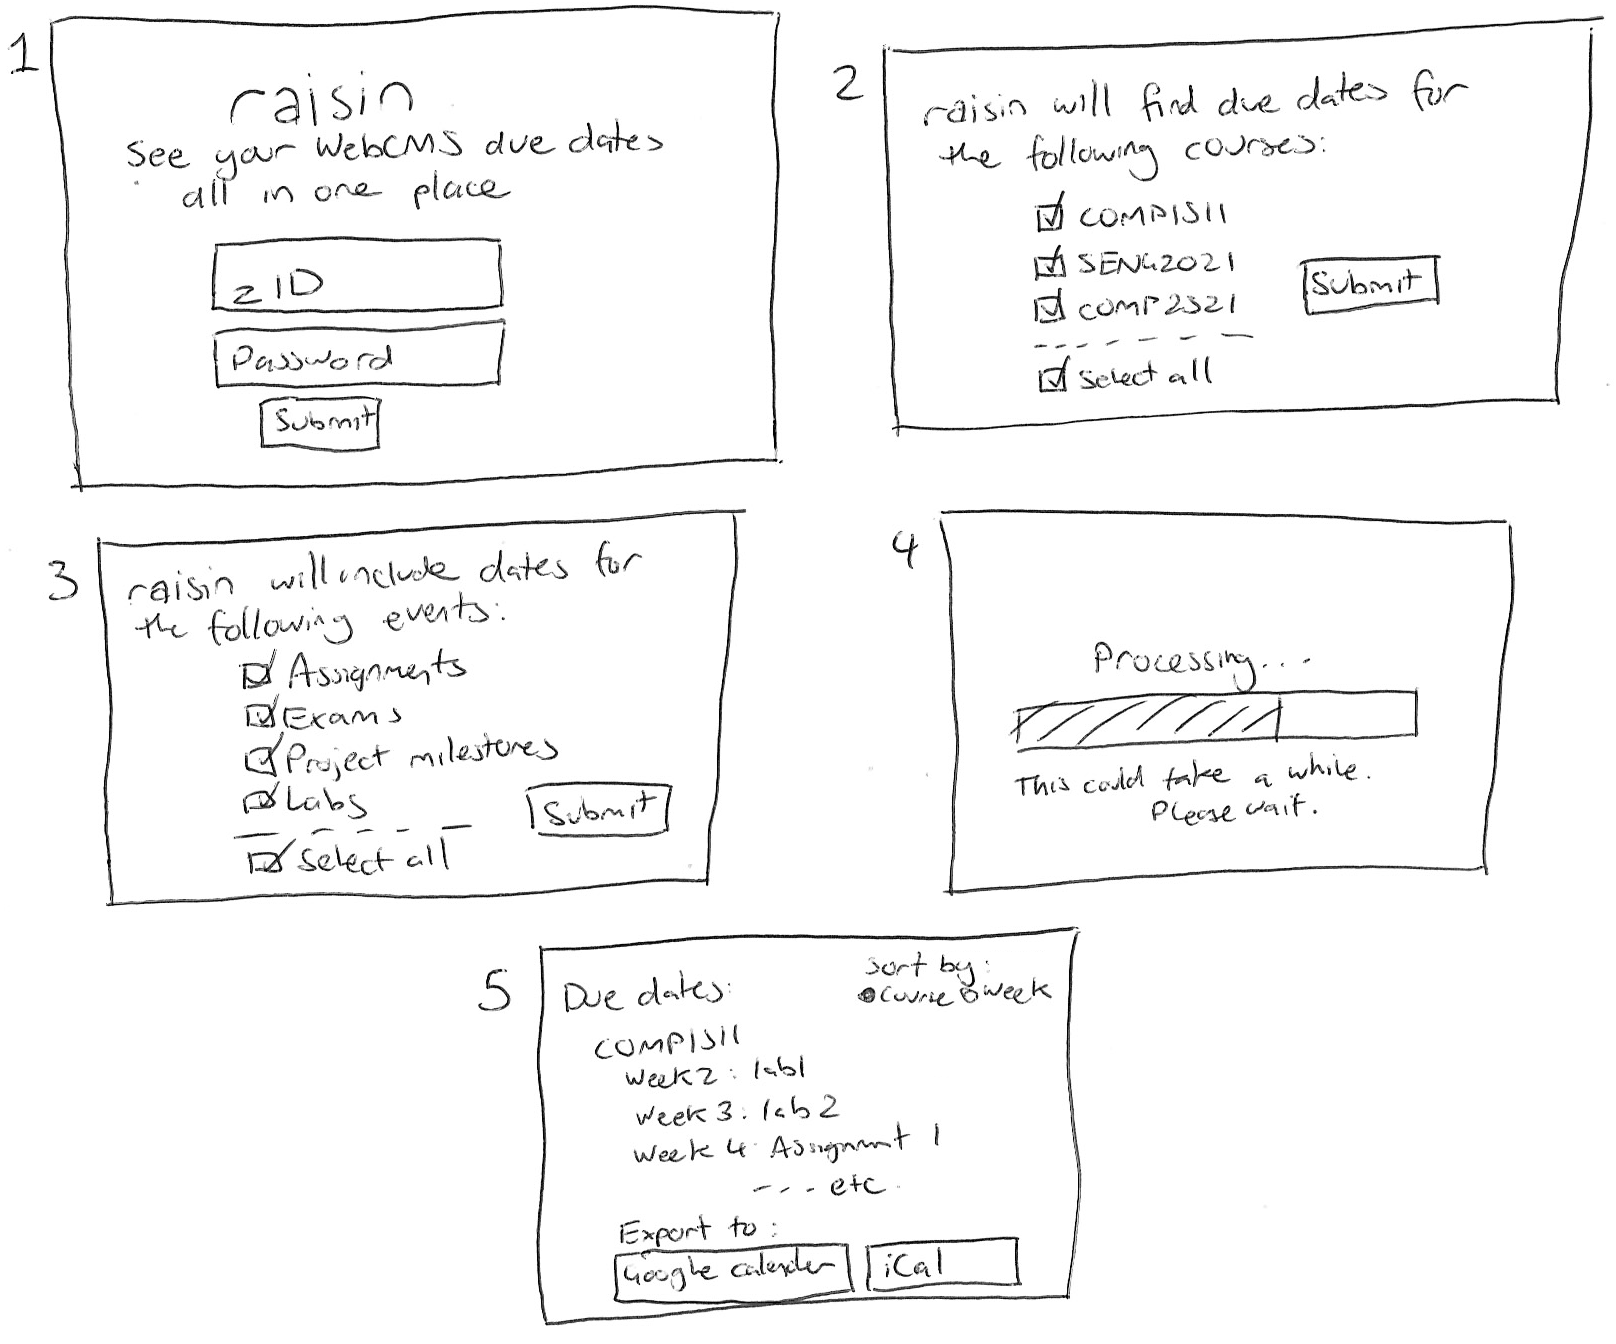 1
raisin
See your WebCMS due dates
all in one place
zID
Password
Submit
2
raisin will find due dates for
the following courses:
COMP1511
SENG2021
COMP2521
Submit
Select all
3
raisin will include dates for
the following events:
Assignments
Exams
Project milestones
Labs
Submit
Select all
4
Processing...
This could take a while.
Please wait.
5
Due dates:
Sort by:
Course Week
COMP1511
Week 2: lab1
Week 3: lab 2
Week 4: Assignment 1
--- etc.
Export to:
Google calender
iCal